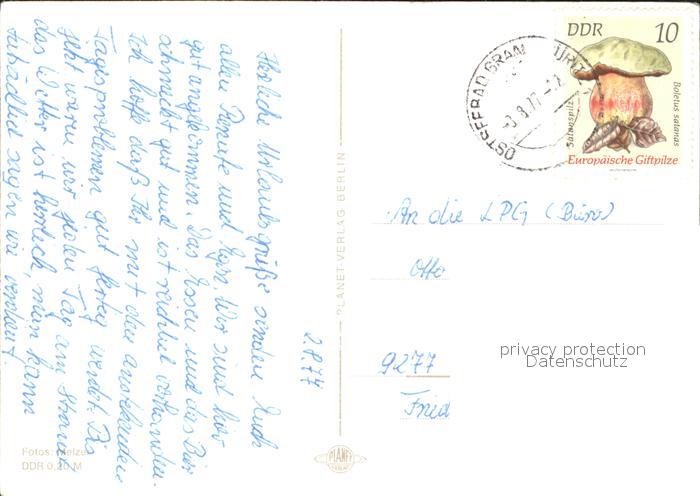 Herzliche Urlaubsgrüße senden Euch
allen Renate und Wir sind hier
gut angekommen. Das Essen und das Bier
schmeckt gut und ist reichlich vorhanden.
Ich hoffe daß Ihr mit den anstehenden
Tagesproblemen gut fertig werdet. Bis
jetzt waren wir jeden Tag am Strand
das Wetter ist herrlich, man kann
tatsächlich sagen wir verdient.
2.8.77
Fotos: Melzer
DDR 0,20 M
PLANET-VERLAG BERLIN
PLANET
VERLAG
OSTSEEBAD GRAAL MÜRITZ
-3.8.77
DDR 10
Satanspilz
Boletus satanas
Europäische Giftpilze
An die LPG (Büro)
Otto
9277
Fried
privacy protection
Datenschutz